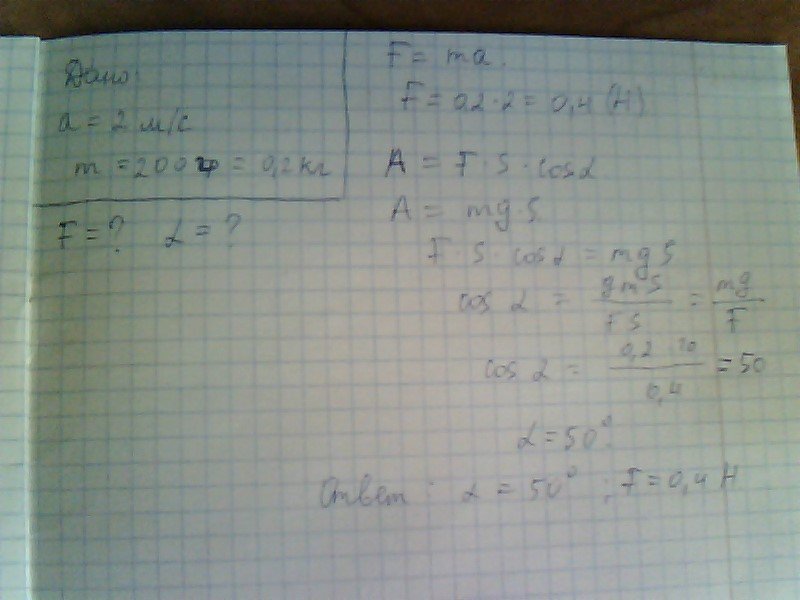 Дано:
a = 2 м/с
m = 200 г = 0,2 кг
F = ? α = ?
F = ma.
F = 0,2 · 2 = 0,4 (Н)
A = F · S · cosα
A = mg · S
F · S · cosα = mgS
cos α = gmS / FS = mg / F
cos α = 0,2 · 10 / 0,4 = 50
α = 50°.
Ответ: α = 50°; F = 0,4 Н